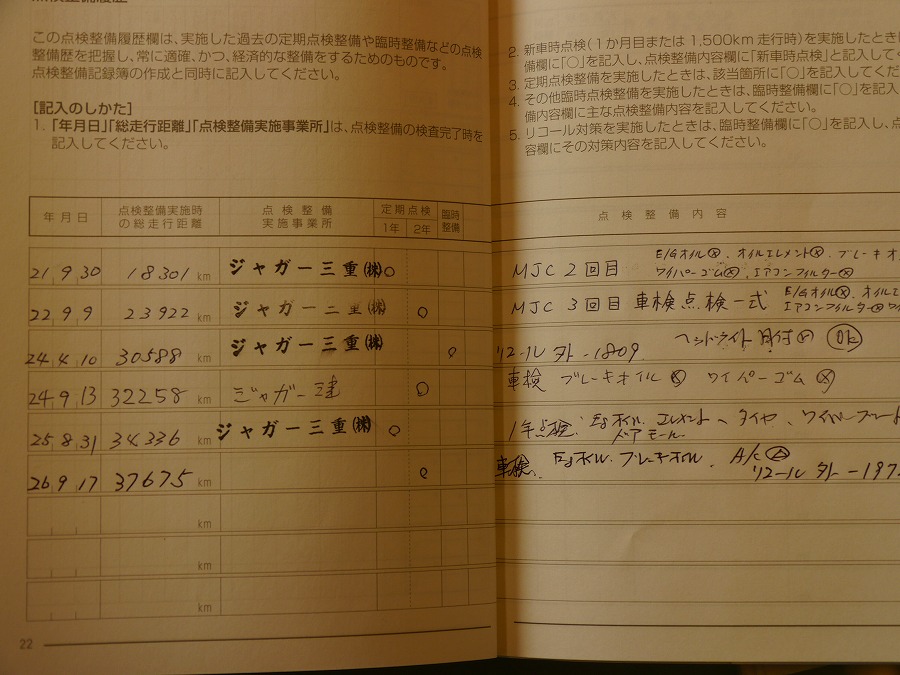 点検整備履歴
この点検整備履歴欄は、実施した過去の定期点検整備や臨時整備などの点検
整備歴を把握し、常に適確、かつ、経済的な整備をするためのものです。
点検整備記録簿の作成と同時に記入してください。
[記入のしかた]
1. 「年月日」「総走行距離」「点検整備実施事業所」は、点検整備の検査完了時を
記入してください。
2. 新車時点検(1か月目または1,500km走行時)を実施したときは
備欄に「○」を記入し、点検整備内容欄に「新車時点検」と記入して
3. 定期点検整備を実施したときは、該当箇所に「○」を記入してくだ
4. その他臨時点検整備を実施したときは、臨時整備欄に「○」を記入
備内容欄に主な点検整備内容を記入してください。
5. リコール対策を実施したときは、臨時整備欄に「○」を記入し、点
容欄にその対策内容を記入してください。
年月日 点検整備実施時の総走行距離 点検整備実施事業所 定期点検 1年 2年 臨時整備 点検整備内容
21 9 30 18301 km ジャガー三重㈱ ○ MJC 2回目 E/Gオイル ⓧ. オイルエレメント ⓧ. ブレーキオ
ワイパーゴム ⓧ. エアコンフィルター ⓧ
22 9 9 23922 km ジャガー三重㈱ ○ MJC 3回目 車検点検一式 E/Gオイル ⓧ. オイルエ
エアコンフィルター ⓧ ワイ
24 4 10 30588 km ジャガー三重㈱ ○ リコール 外-1809 ヘッドライト
24 9 13 32258 km ジャガー三重 ○ 車検 ブレーキオイル ⓧ ワイパーゴム ⓧ
25 8 31 34336 km ジャガー三重㈱ ○ 1年点検. Egオイル. エレメント、タイヤ、ワイパーブレード
ドアモール
26 9 17 37675 km ○ 車検. Egオイル. ブレーキオイル. A/C
リコール 外-197
km
km
km
22